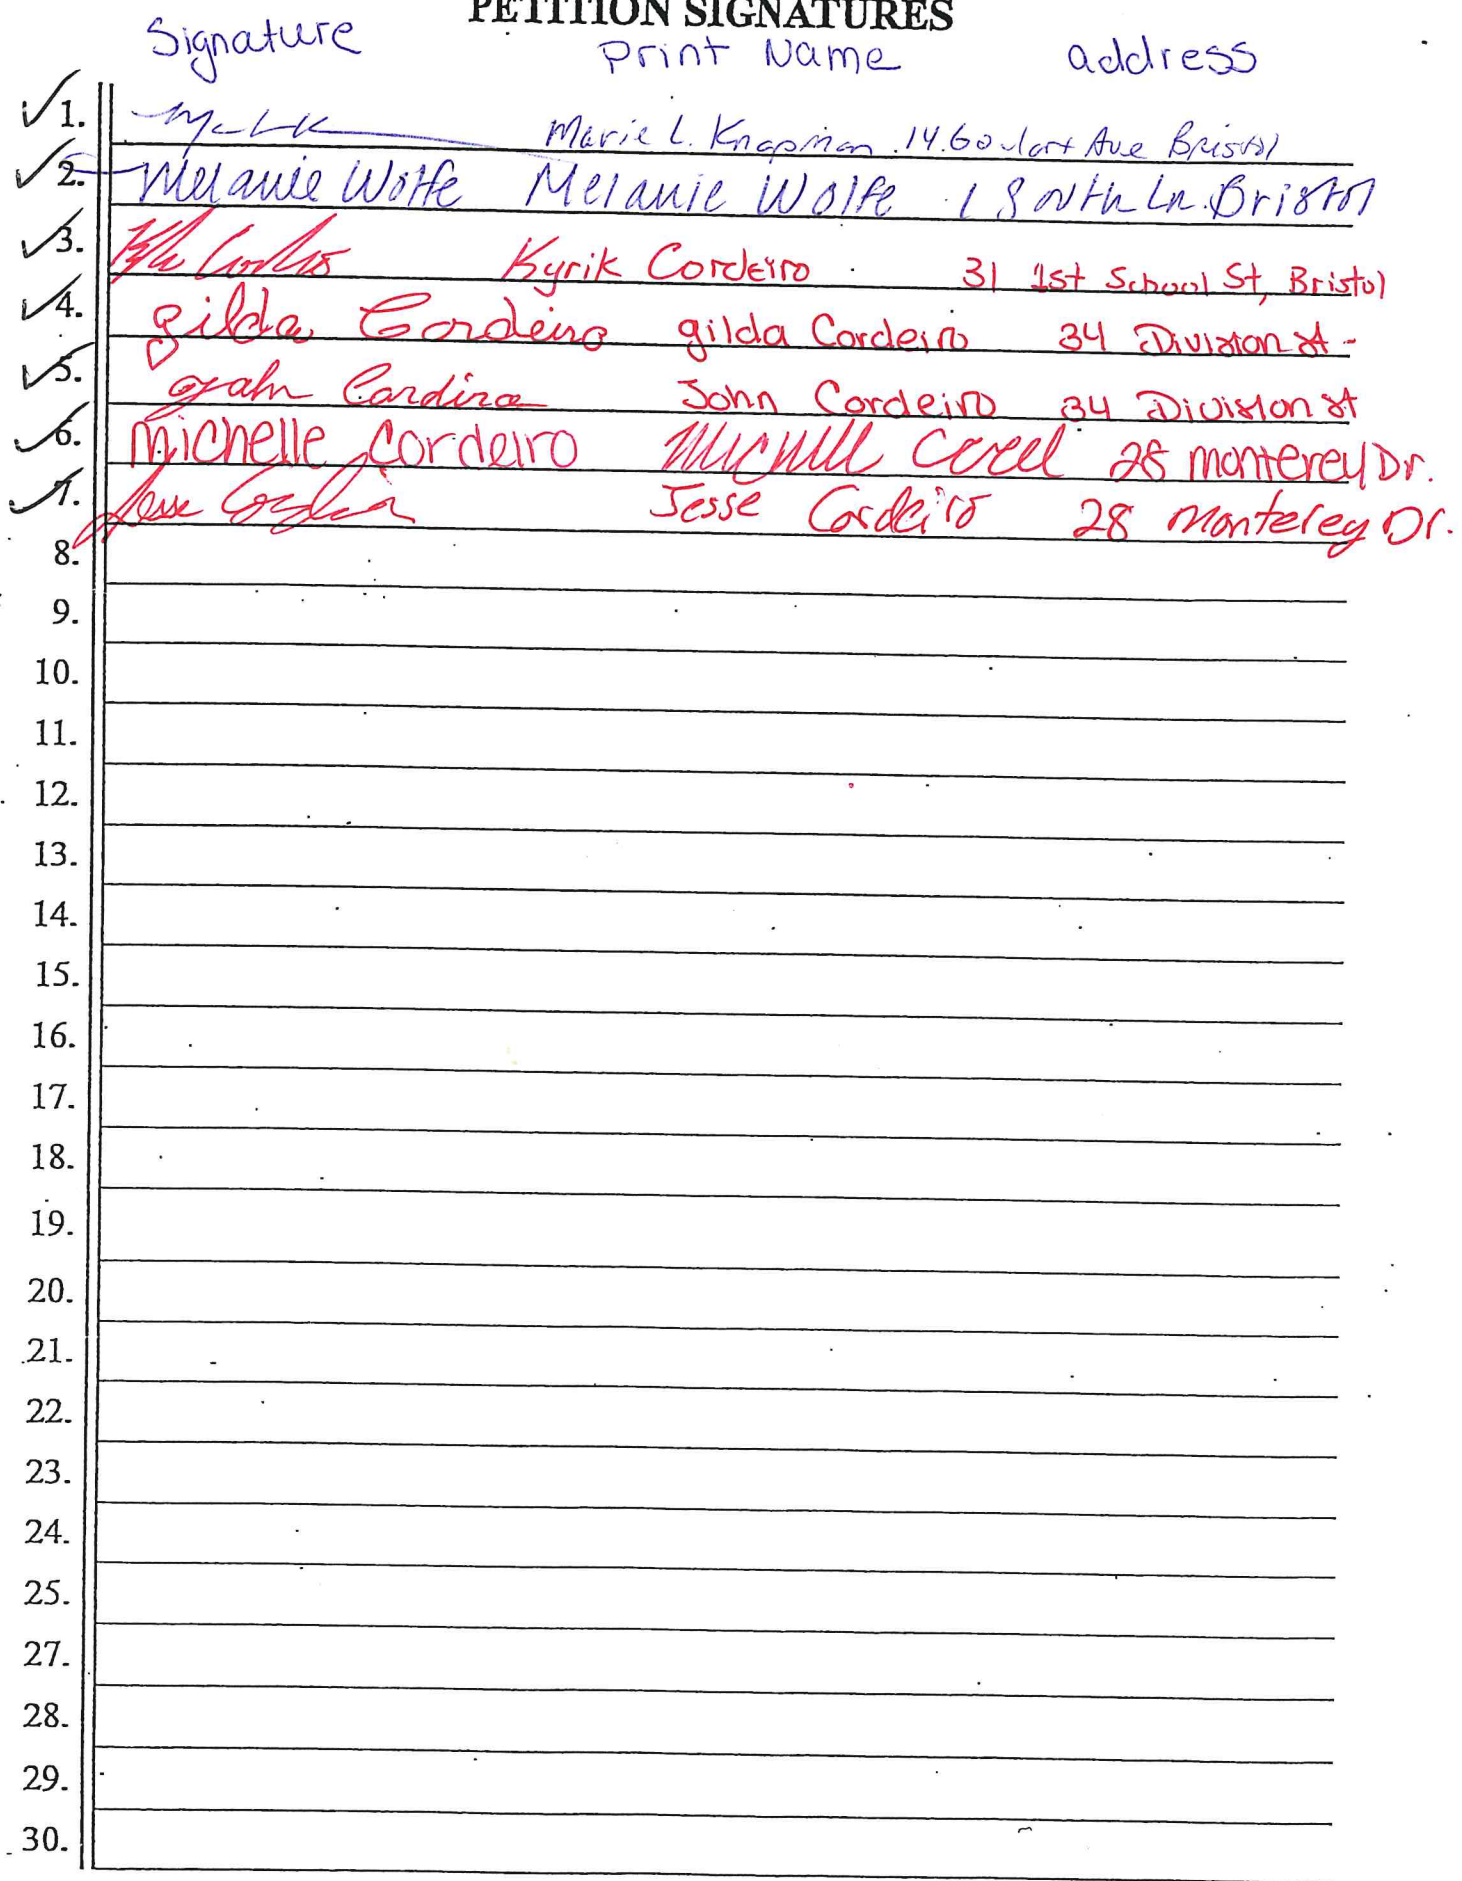 PETITION SIGNATURES
Signature Print Name address
1. Marie L. Knapman 14 Goulart Ave Bristol
2. Melanie Wolfe Melanie Wolfe 1 South Ln. Bristol
3. Kyrik Cordeiro 31 1st School St, Bristol
4. gilda Cordeiro gilda Cordeiro 34 Division st
5. John Cordeiro 34 Division st
6. Michelle Cordeiro 28 Monterey Dr.
7. Jesse Cordeiro 28 Monterey Dr.
8.
9.
10.
11.
12.
13.
14.
15.
16.
17.
18.
19.
20.
21.
22.
23.
24.
25.
27.
28.
29.
30.